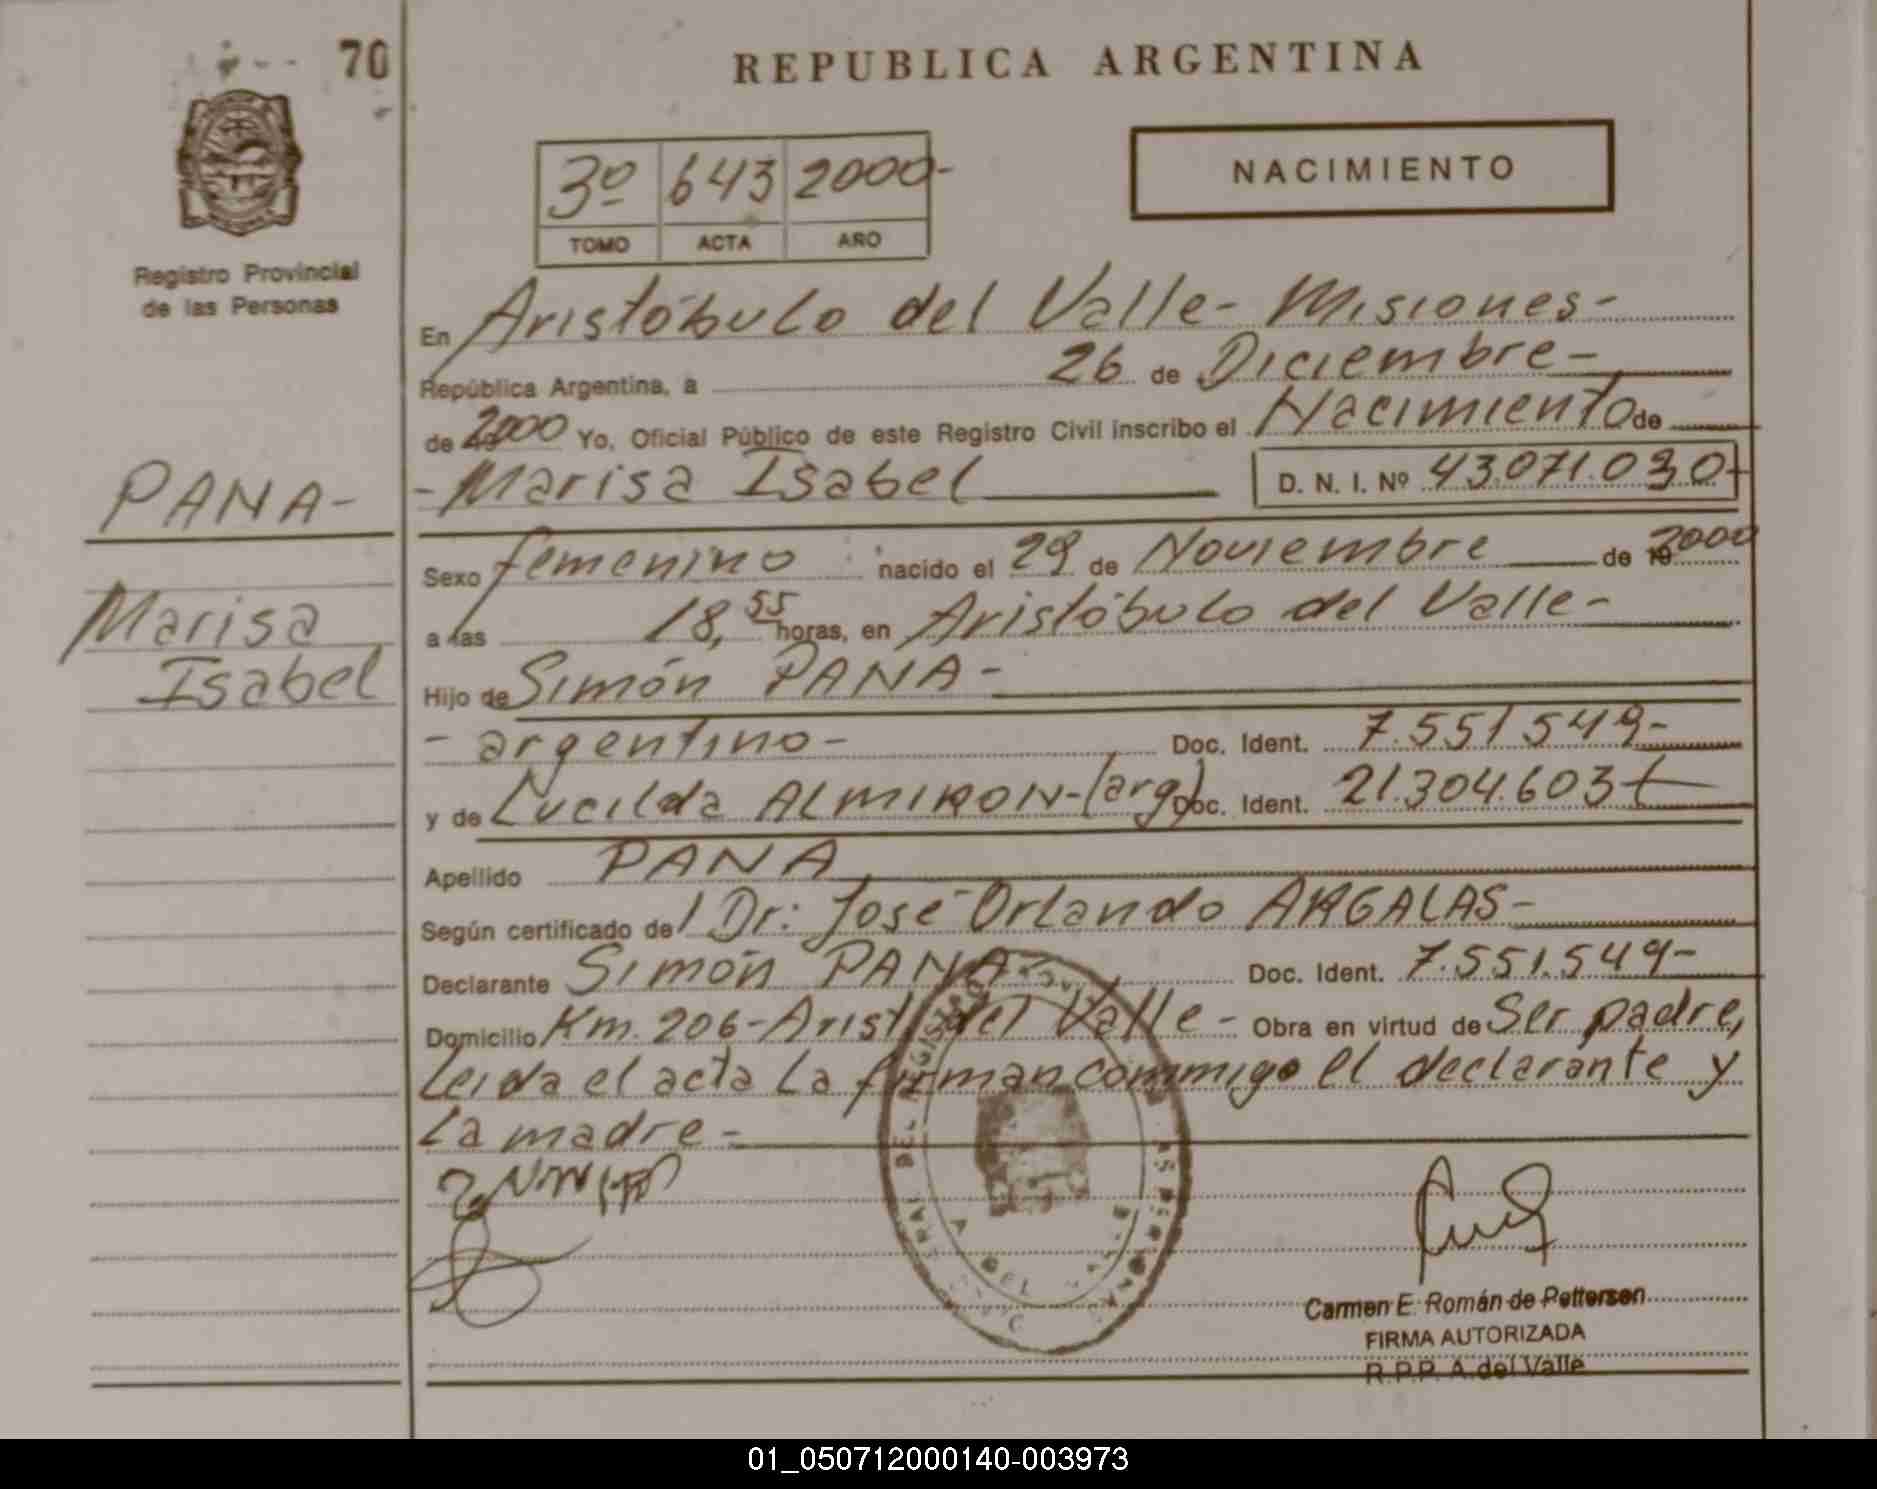 70
REPUBLICA ARGENTINA
3º 643 2000-
TOMO ACTA AÑO
NACIMIENTO
Registro Provincial
de las Personas
En Aristóbulo del Valle- Misiones-
República Argentina, a 26 de Diciembre-
de 2000 Yo, Oficial Público de este Registro Civil inscribo el Nacimiento de
PANA-
- Marisa Isabel D. N. I. Nº 43.071.030-
Sexo femenino nacido el 29 de Noviembre de 2000
Marisa
a las 18,55 horas, en Aristóbulo del Valle-
Isabel
Hijo de Simón PANA-
- argentino- Doc. Ident. 7.551.549-
y de Lucilda ALMIRON-(arg) Doc. Ident. 21.304.603
Apellido PANA
Según certificado de l Dr: José Orlando ARGALAS-
Declarante Simón PANA- Doc. Ident. 7.551.549-
Domicilio Km. 206-Arist. del Valle- Obra en virtud de Ser padre,
Leida el acta la firman commigo el declarante y
la madre-
Carmen E. Román de Pettersen
FIRMA AUTORIZADA
R.P.P. A. del Valle
01_050712000140-003973